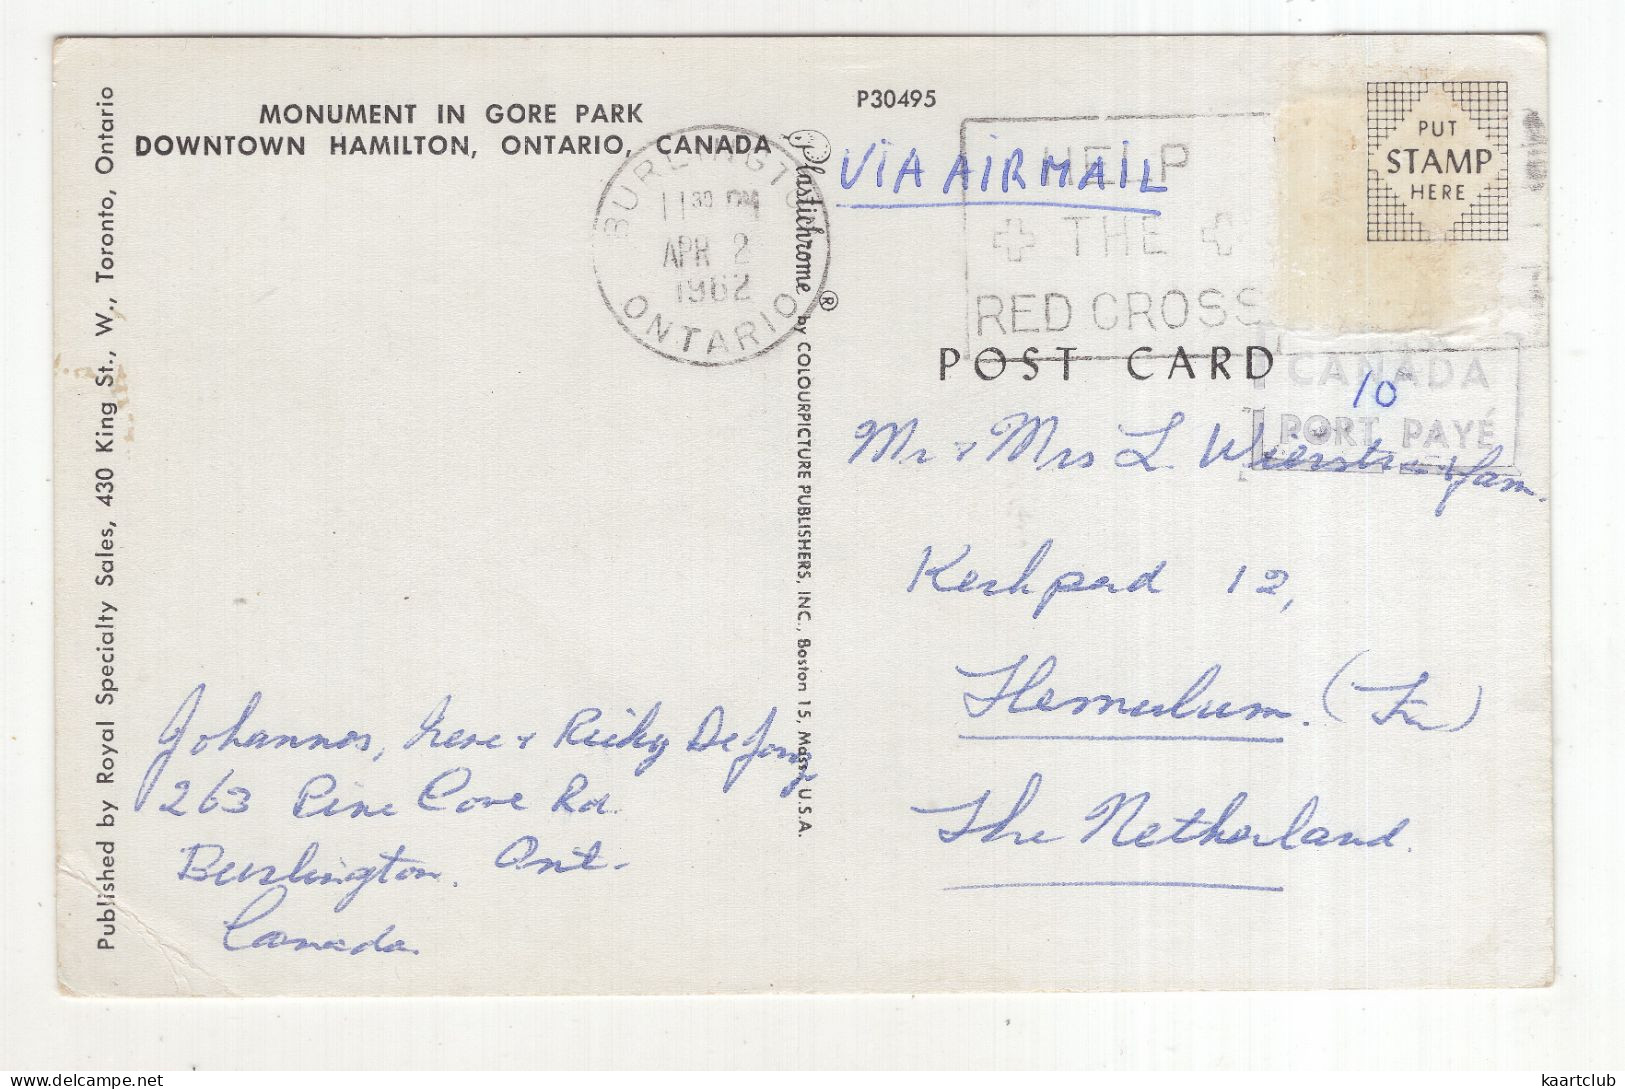 MONUMENT IN GORE PARK
DOWNTOWN HAMILTON, ONTARIO, CANADA
Published by Royal Specialty Sales, 430 King St., W., Toronto, Ontario
BURLINGTO
11 30 PM
APR 2
1962
ONTARIO
Plastichrome ® by COLOURPICTURE PUBLISHERS, INC., Boston 15, Mass., U.S.A.
P30495
VIA AIR MAIL
HELP
THE
RED CROSS
PUT
STAMP
HERE
POST CARD
CANADA
PORT PAYÉ
10
Mr + Mrs L. Wierstra + fam.
Kerkpad 12,
Hemelum. (Fr)
The Netherland.
Johannes, Irene + Ricky De Jong
263 Pine Cove Rd.
Burlington. Ont.
Canada.
kaartclub